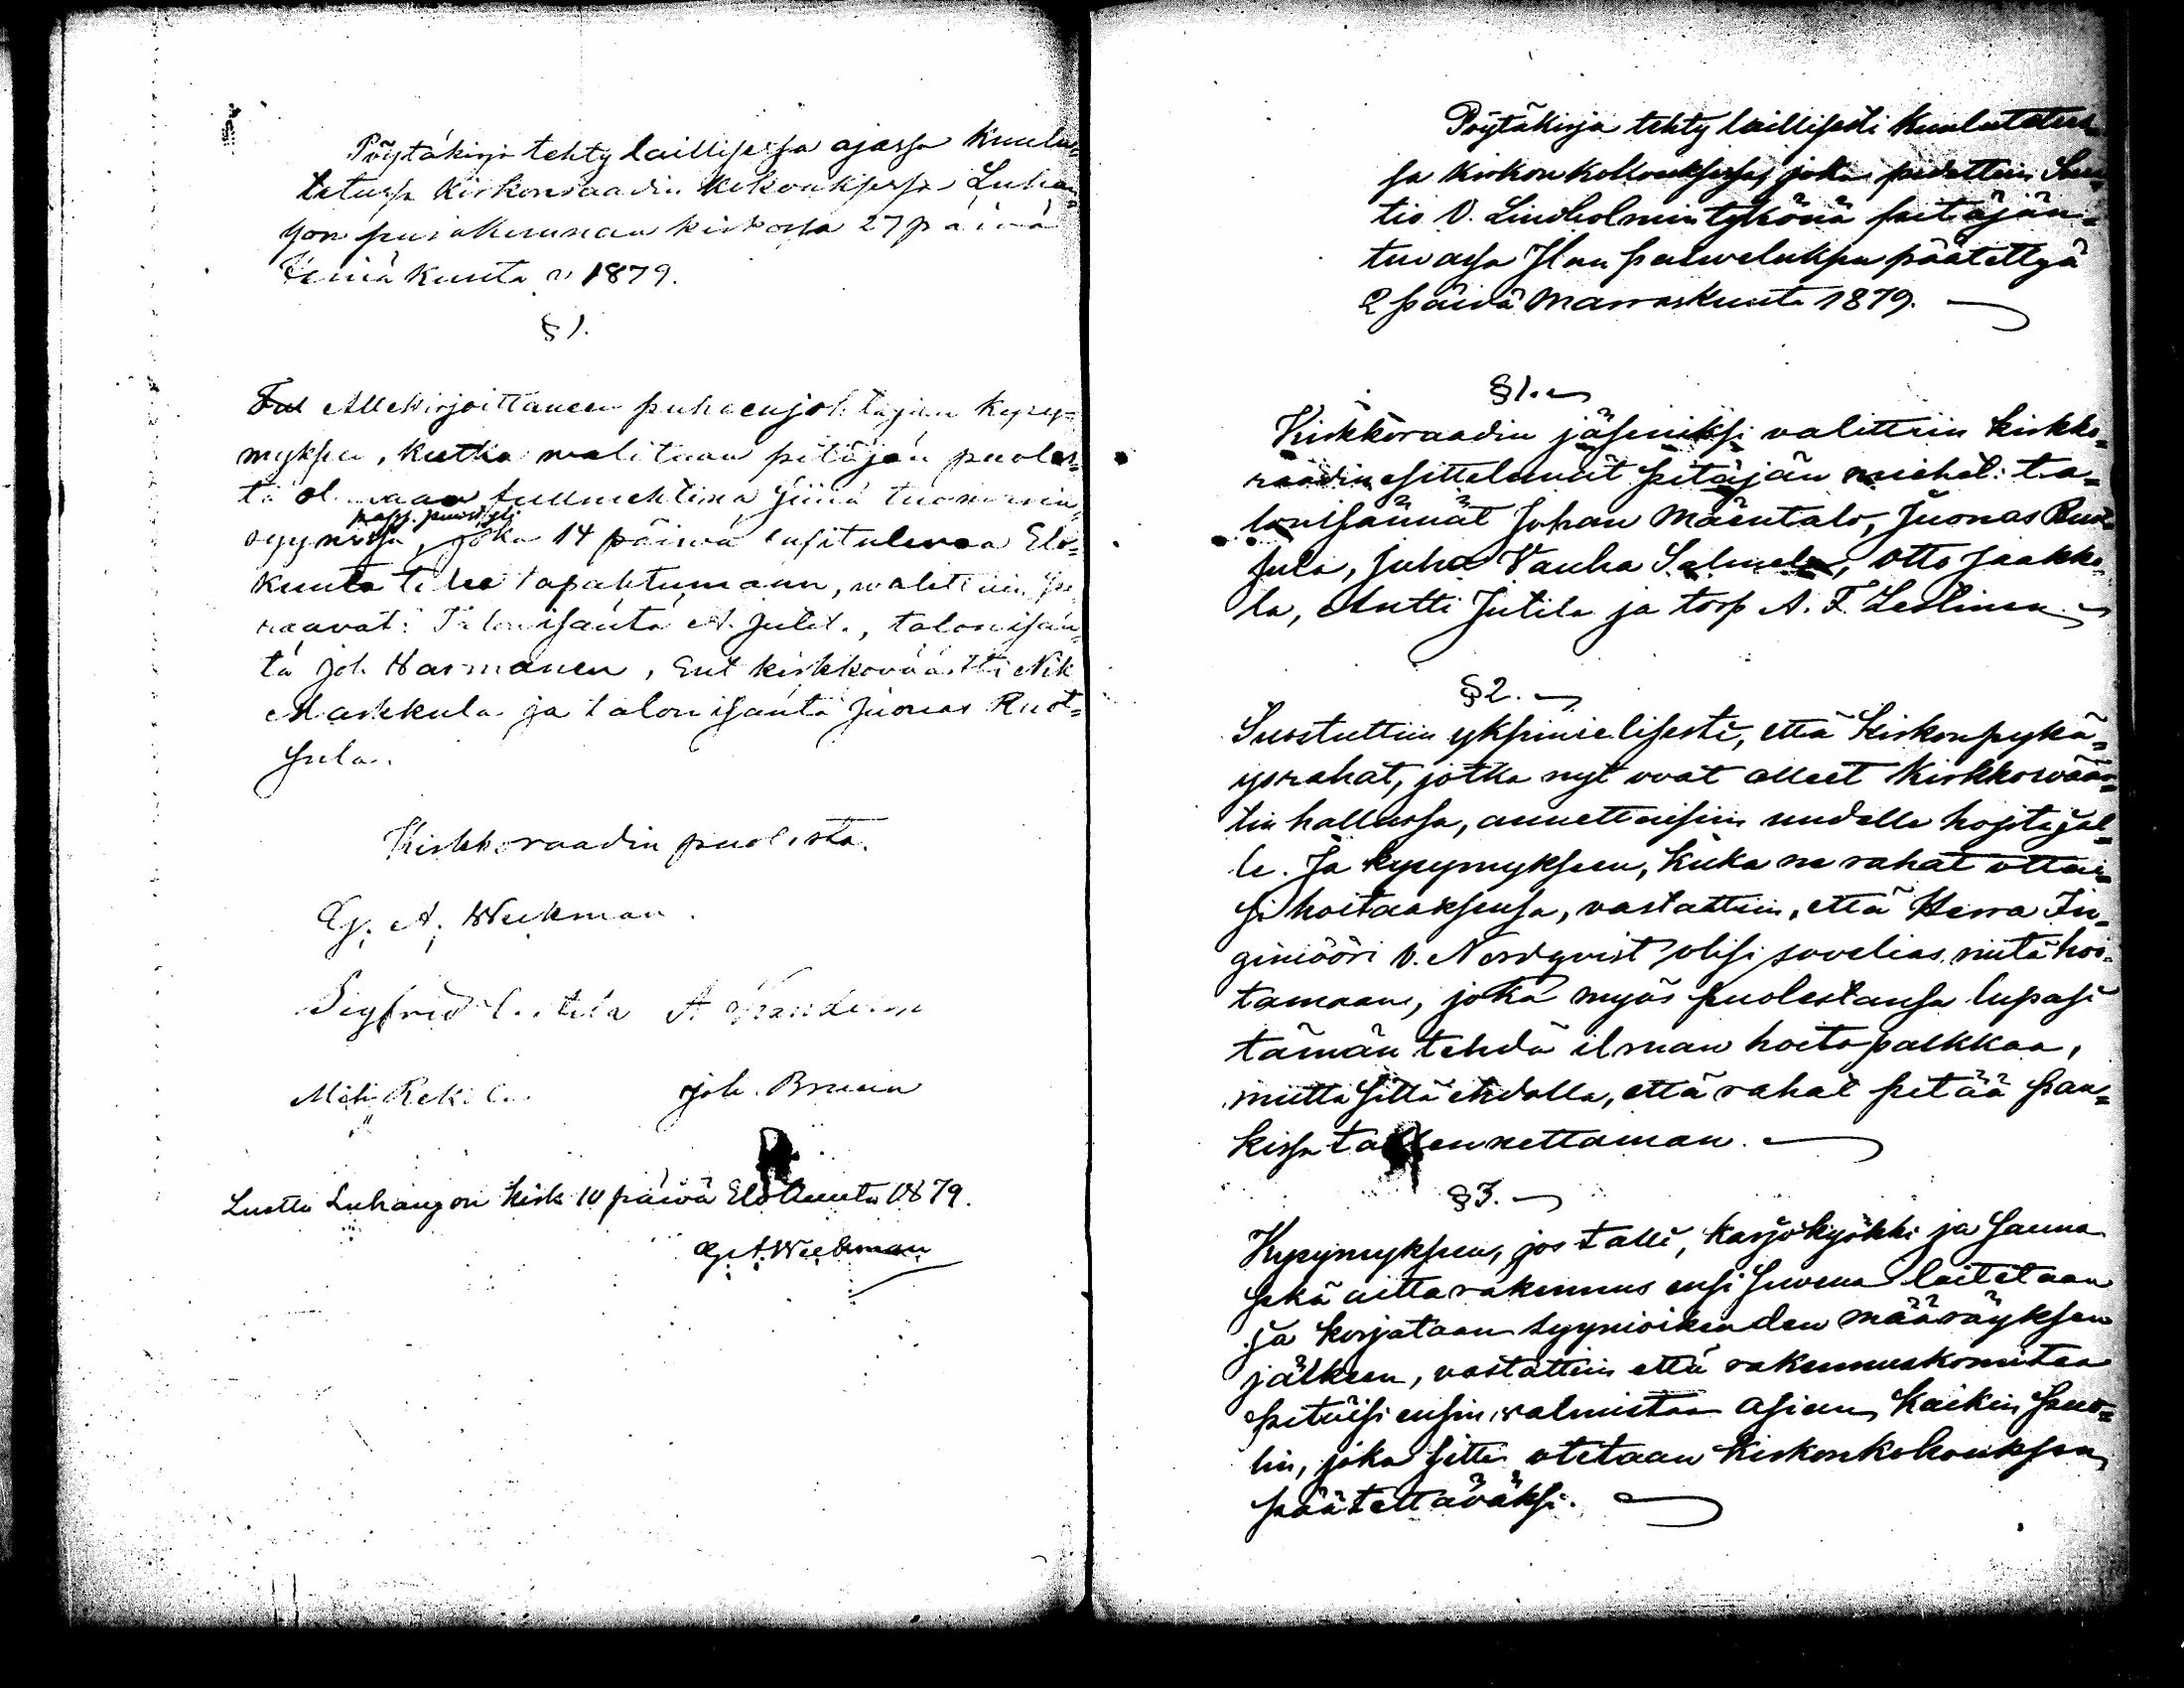 Pöytäkirja tehty laillisessa ajassa kuulu=
tetussa Kirkonraadin kokouksessa Luhan=
gon seurakunnan kirkossa 27 päivä
Heinäkuuta v 1879.
§ 1.
Allekirjoittaneen puheenjohtajan kysy=
myksen, kutka valitaan pitäjän puoles=
ta olemaan saapp. puust. yli
syynissä, joka 14 päivä ensitulevaa Elo=
kuuta tulee tapahtumaan, valittiin seu
raavat: Talonisäntä A. Jutil., talonisän=
tä Joh Harmanen, Ent kirkkoväärtti Nik
Markkula ja talonisäntä Juonas Ruot=
sula.
Kirkkoraadin puolesta.
G. A. Weckman.
Sigfrid A
Mih Rekola. Joh. Bruun
Luettu Luhangon Kirk 10 päivä Elokuuta 1879.
G. A. Weckman
Pöytäkirja tehty laillisesti kuulutetus
sa kirkonkokouksessa, joka pidettiin Lun
tio V. Lindholmin tykönä pitäjän=
tuvassa Jlan palveluksen päätettyä
2 päivä Marraskuuta 1879.
§ 1.
Kirkkoraadin jäseniksi valittiin kirkko=
raadin esittelemät pitäjän miehet: ta=
lonisännät Johan Mäentalo, Juonas Ruot
sula, Juha Vanha Salmela, Otto Jaakko=
la, Antti Jutila ja torp A. F. Leslinen.
§ 2.
Suostuttiin yksimielisesti, että Kirkonpykä=
ysrahat, jotka nyt ovat olleet Kirkkovään=
tin hallussa, annettaisiin uudelle hojtajal=
le. Ja kysymykseen, kuka ne rahat ottai=
si hoitaaksensa, vastattiin, että Herra In=
siniööri V. Nordqvist olisi sovelias niitä hoi=
tamaan, joka myös puolestansa lupasi
tämän tehdä ilman hoitopalkkaa,
mutta sillä ehdolla, että rahat pitää pan=
kissa tallennettaman.
§ 3.
Kysymykseen, jos talli, karjakyökki ja sauna
sekä aittarakennus ensi suvena laitetaan
ja korjataan syynioikeuden määräyksen
jälkeen, vastattiin että rakennuskomitea
pitäisi ensin valmistaa asian kaikin puo=
lin, joka sitte otetaan Kirkonkokouksen
päätettäväksi.